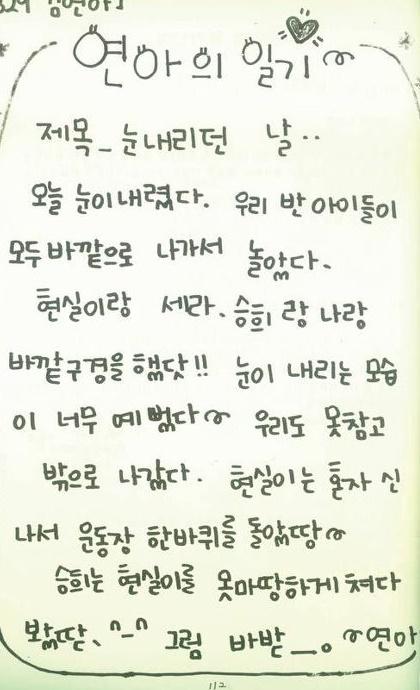 연아의 일기
제목_눈내리던 날..
오늘 눈이내렸다. 우리 반 아이들이
모두 바깥으로 나가서 놀았다.
현실이랑 세라. 승희 랑 나랑
바깥구경을 했닷!! 눈이 내리는 모습
이 너무 예뻤다~ 우리도 못참고
밖으로 나갔다. 현실이는 혼자 신
나서 운동장 한바퀴를 돌았땅~
승희는 현실이를 못마땅하게 쳐다
봤따. ^-^ 그럼 바밧_。~연아
112